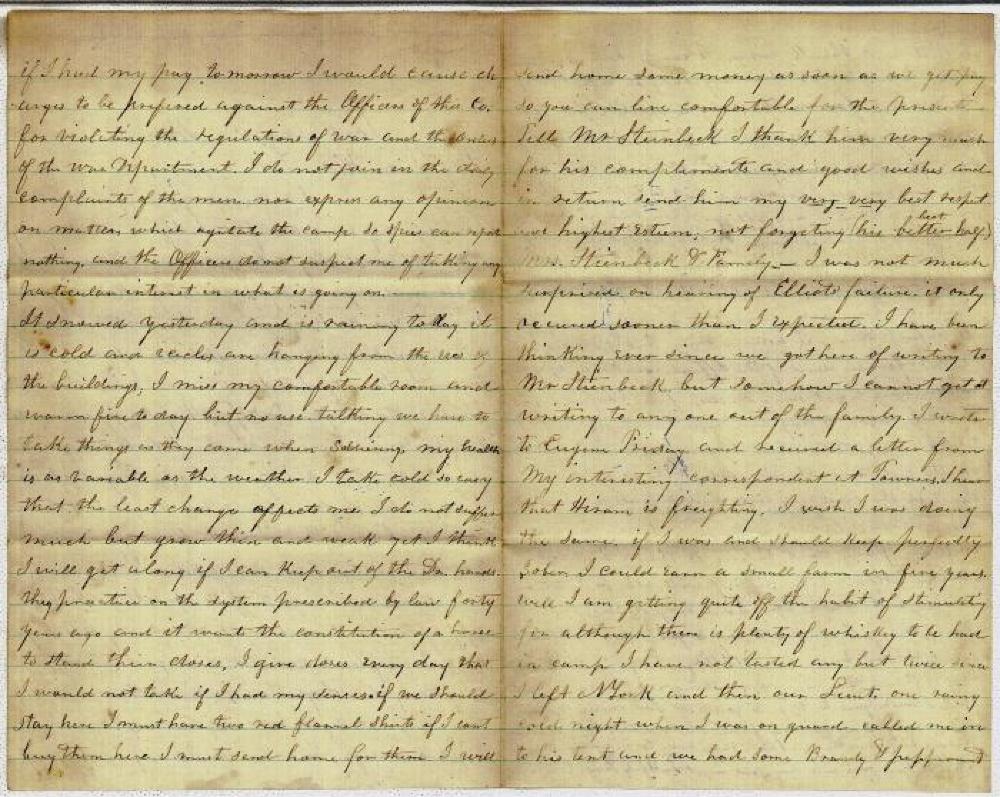 if I had my pay tomorrow I would cause ch
arges to be prefered against the Officers of this Co.
for violating the regulations of war and the orders
of the war Department. I do not join in the daily
complaints of the men nor express any opinion
on matters which agitate the camp so spies can report
nothing, and the Officers do not suspect me of taking any
particular interest in what is going on.
It snowed yesterday and is raining to day it
is cold and icicles are hanging from the of
the buildings, I miss my comfortable room and
warm fire to day but no use talking we have to
take things as they come when Soldiering, my health
is as variable as the weather I take cold so easy
that the least change affects me I do not suffer
much but grow thin and weak yet I think
I will get along if I can keep out of the Drs hands.
they practice on the system prescribed by law forty
years ago and it wants the constitution of a horse
to stand their doses, I give doses every day that
I would not take if I had my senses. if we should
stay here I must have two red flannel shirts if I cant
buy them here I must send home for them I will
send home some money as soon as we get pay
so you can live comfortable for the present
Tell Mr Steinbeck I thank him very much
for his compliments and good wishes and
in return send him my very very best respt
and highest Esteem, not forgeting (his better half)
best
Mrs. Steinbeck & Family — I was not much
surprised on hearing of Elliots failure. it only
occured sooner than I expected. I have been
thinking ever since we got here of writing to
Mr Steinbeck but somehow I cannot get at
writing to any one out of the family. I wrote
to Eugene Friday and received a letter from
My interesting correspondent at Towners, I hear
that Hiram is freighting. I wish I was doing
the same, if I was and should keep perfectly
sober I could earn a small farm in five years.
well I am getting quite off the habit of
for although there is plenty of whiskey to be had
in camp I have not tasted any but twice since
I left N York and then our Lieut. one rainy
cold night when I was on guard called me in
to his tent and we had some Brandy &